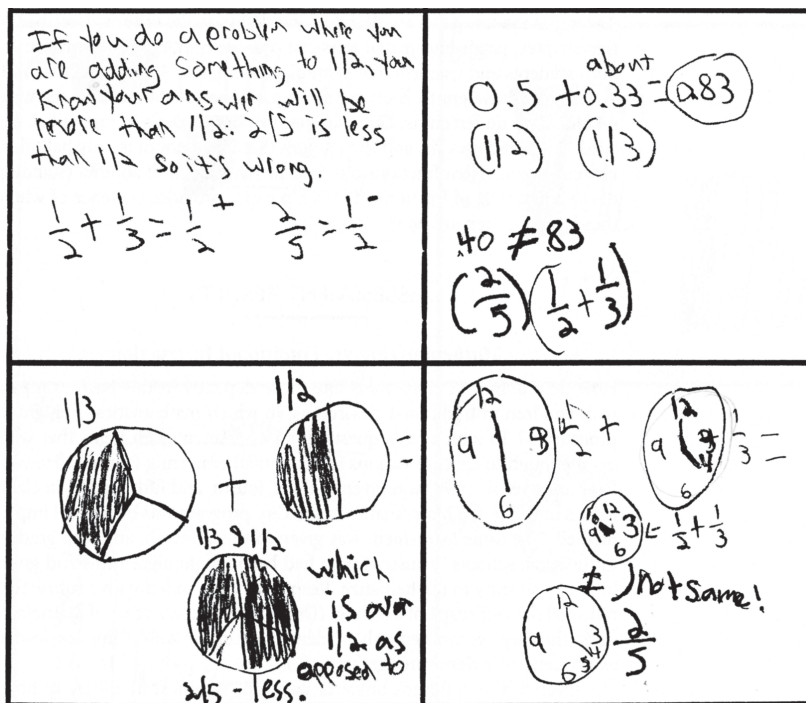 If you do a problem where you
are adding something to 1/2, you
know your answer will be
more than 1/2. 2/5 is less
than 1/2 so it's wrong.
1/2 + 1/3 = 1/2 + 2/5 = 1/2 -
about
0.5 + 0.33 = 0.83
(1/2) (1/3)
.40 ≠ .83
(2/5) (1/2 + 1/3)
1/3 + 1/2 =
1/3 & 1/2
which
is over
1/2 as
opposed to
2/5 - less.
12 9 3 6 1/2 + 12 9 4 6 1/3 =
12 9 3 6 = 1/2 + 1/3
≠ ) Not same!
12 9 3 4 5 6 2/5